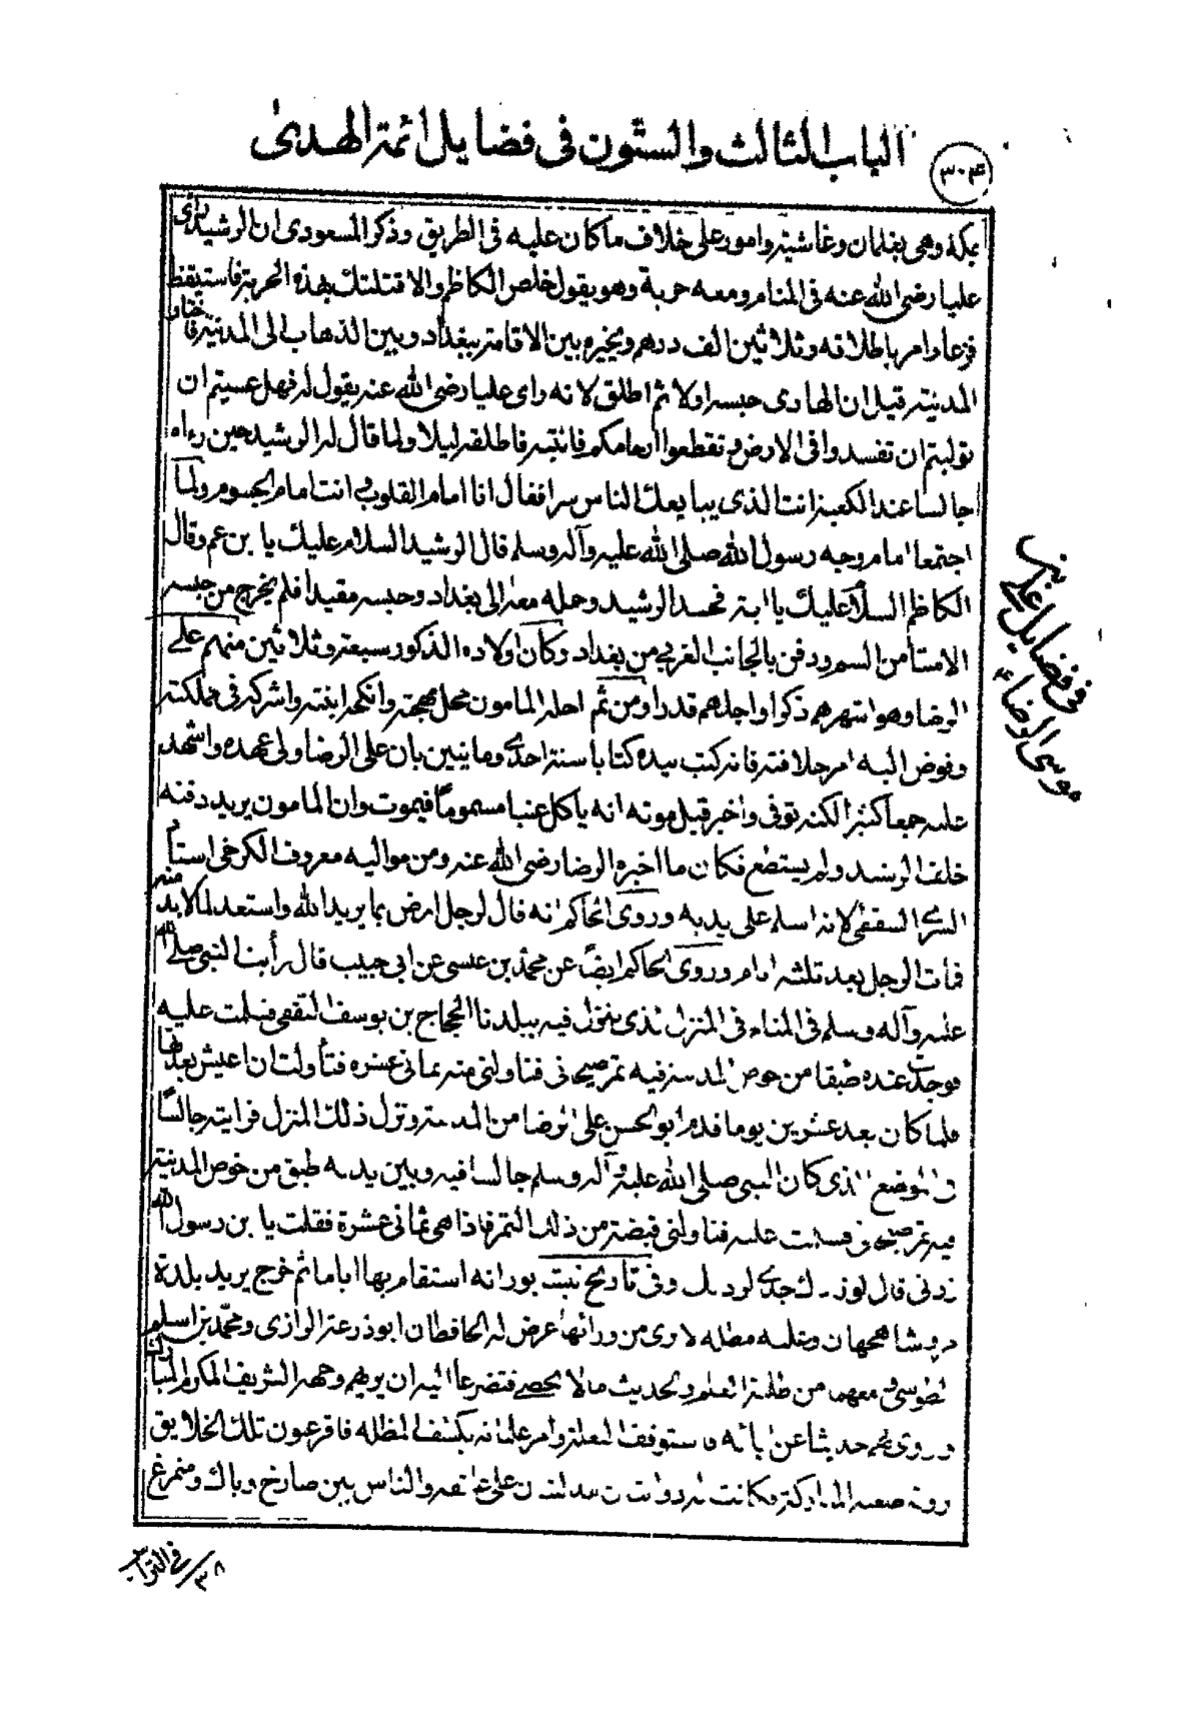 الباب الثالث والستون فى فضايل ائمة الهدى
٣٠٤
بمكة وهى بغلمان وغاشية وامور على خلاف ما كان عليه فى الطريق وذكر المسعودى ان الرشيد راى
عليا رضى الله عنه فى المنام ومعه حربة وهو يقول خلص الكاظم والا قتلتك بهذه الحربة فاستيقظ
فزعا وامر باطلاقه وثلاثين الف درهم ويخيره بين الاقامة ببغداد وبين الذهاب الى المدنية فاختار
المدنية قيل ان الهادى حبسه اولا ثم اطلق لانه راى عليا رضى الله عنه يقول له فهل عسيتم ان
توليتم ان تفسدوا فى الارض وتقطعوا ارحامكم فانتبه فاطلقه ليلا ولما قال له الرشيد حين راه
جالسا عند الكعبة انت الذى يبايعك الناس سرا فقال انا امام القلوب وانت امام الجسوم ولما
اجتمعا امام وجه رسول الله صلى الله عليه وآله وسلم قال الرشيد السلام عليك يا بن عم وقال
الكاظم السلام عليك يا ابة فحسد الرشيد وحمله معه الى بغداد وحبسه مقيدا فلم يخرج من حبسه
الا متا من السم ودفن بالجانب الغربى من بغداد وكان اولاده الذكور سبعة وثلاثين منهم على
الرضا وهو اشهرهم ذكرا واجلهم قدرا ومن ثم احله المامون محل مهجته وانكحه ابنته واشركه فى مملكته
وفوض اليه امر خلافته فانه كتب بيده كتابا سنة احدى وماتين بان على الرضا ولى عهده واشهد
عليه جمعا كثيرا لكنه توفى واخبر قبل موته انه ياكل عنبا مسموما فيموت وان المامون يريد دفنه
خلف الرشيد ولم يستطع فكان ما اخبره الرضا رضى الله عنه ومن مواليه معروف الكرخى استاد
السرى السقطى لانه اسلم على يديه وروى الحاكم انه قال لرجل ارض بما يريد الله واستعد لما لا بد منه
فمات الرجل بعد ثلثه ايام وروى الحاكم ايضا عن محمد بن عيسى عن ابى حبيب قال رأيت النبى صلى الله
عليه وآله وسلم فى المنام فى المنزل الذى ينزل فيه ببلدنا الحجاج بن يوسف الثقفى فسلمت عليه
فوجدت عنده طبقا من خوص المدينة فيه تمر صيحانى فناولنى منه ثمانى عشرة فتأولت ان اعيش بعدتها
فلما كان بعد عشرين يوما قدم ابو الحسن على الرضا من المدينة ونزل ذلك المنزل فرايته جالسا
فى الموضع الذى كان النبى صلى الله عليه وآله وسلم جالسا فيه وبين يديه طبق من خوص المدينة
فيه تمر صيحانى فسلمت عليه فناولنى قبضة من ذلك التمر فاذا هى ثمانى عشرة فقلت يا بن رسول الله
زدنى قال لو زادك جدى لزدناك وفى تاريخ نيشابور انه استقام بها اياما ثم خرج يريد بلدة
مرو شاهجهان وعليه مظله لا يرى من ورائها عرض له الحافظان ابو ذرعة الرازى ومحمد بن اسلم
الطوسى ومعهما من طلبة العلم والحديث ما لا يحصى فتضرعا اليه ان يريهم وجهه الشريف المكرم المبارك
ويروى لهم حديثا عن ابائه فاستوقف البغلة وامر غلمانه بكشف المظله فاقر عيون تلك الخلايق
برؤية طلعته المباركة فكانت له ذوابتان مدليتان على عاتقه والناس بين صارخ وباك ومتمرغ
فى فضايل على بن
موسى الرضا ع
فى التراب ٣٨